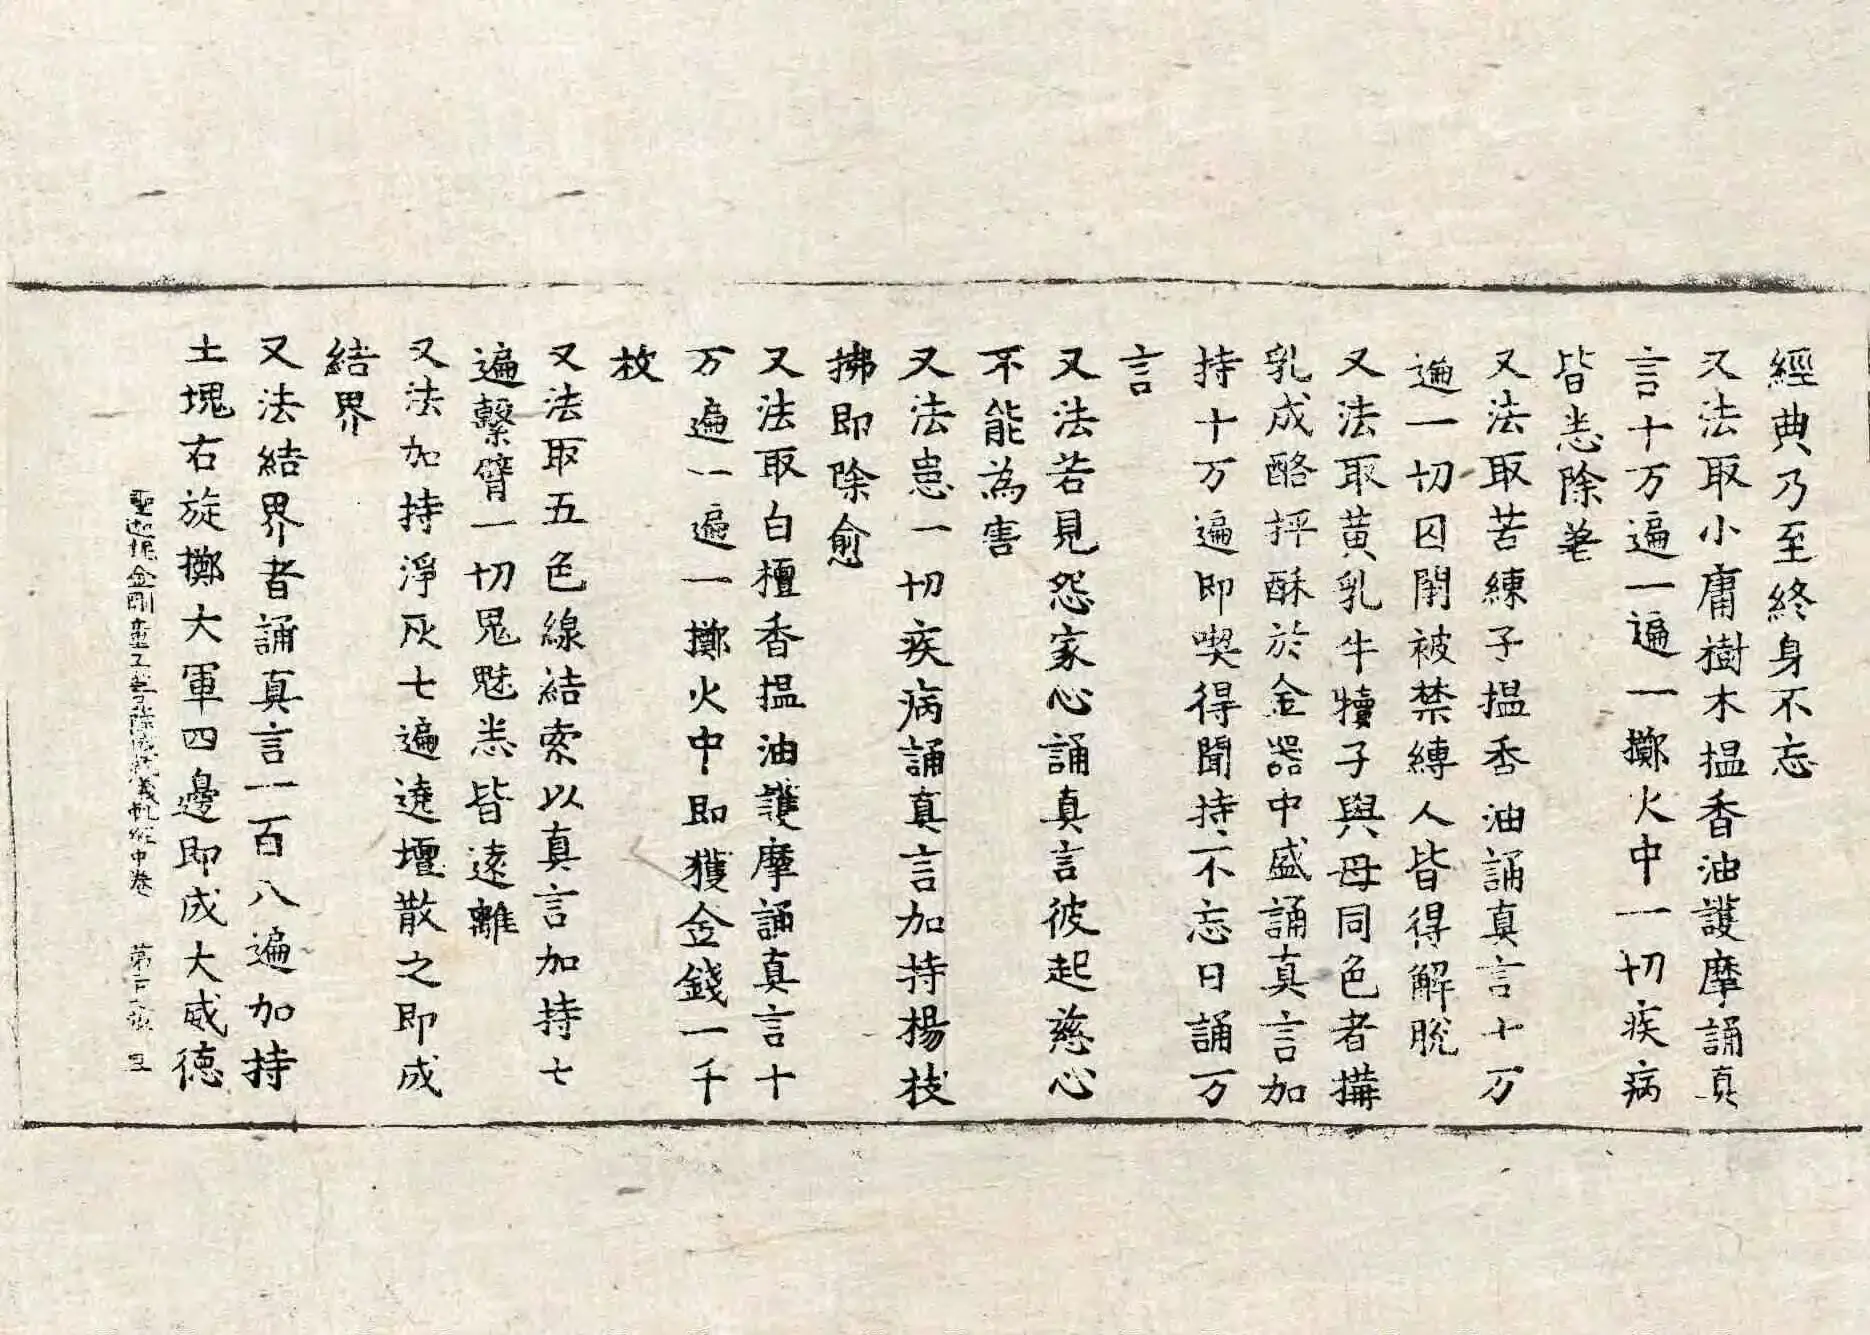 經典乃至終身不忘
又法取小庸樹木搵香油護摩誦真
言十万遍一遍一擲火中一切疾病
皆悉除差
又法取苦練子搵香油誦真言十万
遍一切囚閉被禁縛人皆得解脫
又法取黃乳牛犢子與母同色者搆
乳成酪抨酥於金器中盛誦真言加
持十万遍即喫得聞持不忘日誦万
言
又法若見怨家心誦真言彼起慈心
不能為害
又法患一切疾病誦真言加持楊枝
拂即除愈
又法取白檀香搵油護摩誦真言十
万遍一遍一擲火中即獲金錢一千
枚
又法取五色線結索以真言加持七
遍繫臂一切鬼魅悉皆遠離
又法加持淨灰七遍遶壇散之即成
結界
又法結界者誦真言一百八遍加持
土塊右旋擲大軍四邊即成大威德
聖迦抳金剛童子 儀軌經中卷 第 張